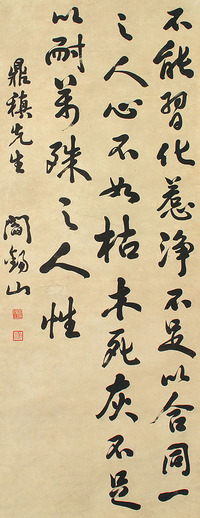 不能習化惹淨不足以合同一
之人心不如枯木死灰不足
以耐萬殊之人性
鼎祺先生
閻錫山